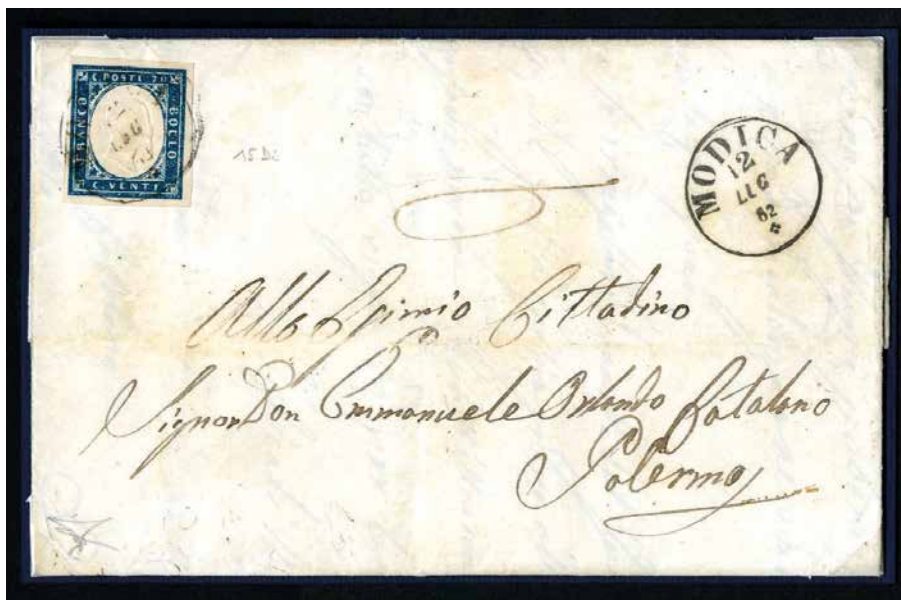 C. POSTE 20
FRANCO
BOLLO
C. VENTI
LUG
15Dc
MODICA
12
LUG
62
All Esimio Cittadino
Signor Don Emmanuele Orlando Catalano
Palermo